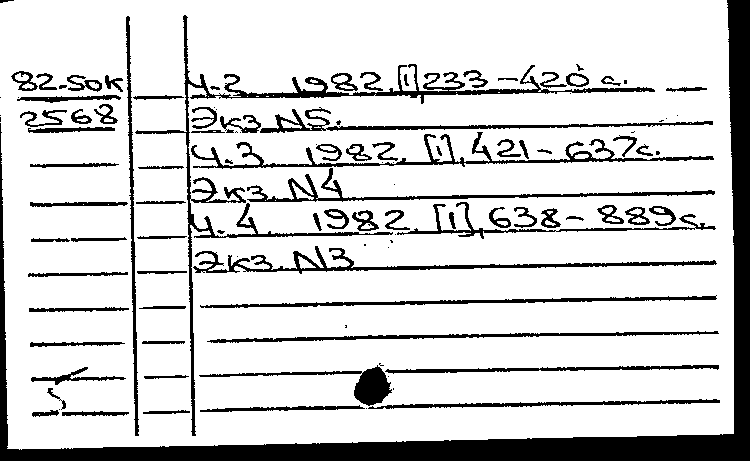 82-5ок Ч.2 1982. [1], 233-420 с.
2568 Экз. N5.
Ч.3 1982. [1], 421-637с.
Экз. N4
Ч.4. 1982. [1], 638-889с.
Экз. N3
5